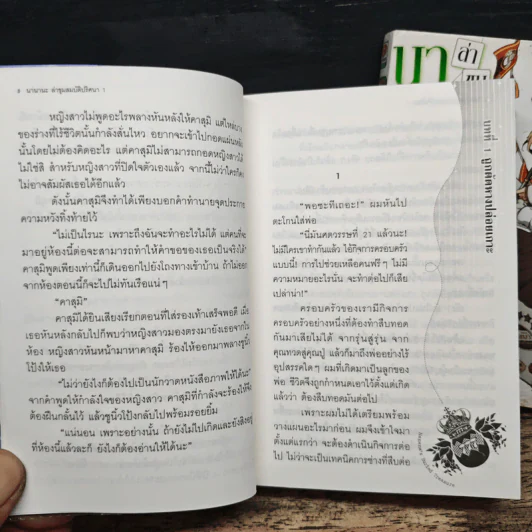 8 นานานะ ล่าขุมสมบัติปริศนา 1
หญิงสาวไม่พูดอะไรพลางหันหลังให้คาสุมิ แต่ไหล่บาง
ของร่างที่ไร้ชีวิตนั้นกำลังสั่นไหว อยากจะเข้าไปกอดแผ่นหลัง
นั้นโดยไม่ต้องคิดอะไร แต่คาสุมิไม่สามารถกอดหญิงสาวได้
ไม่ใช่สิ สำหรับหญิงสาวที่ปิดใจตัวเองแล้ว จากนี้ไม่ว่าใครก็
ไม่อาจสัมผัสเธอได้อีกแล้ว
ดังนั้นคาสุมิจึงทำได้เพียงบอกคำทำนายจุดประกาย
ความหวังทิ้งท้ายไว้
"ไม่เป็นไรนะ เพราะถึงฉันจะทำอะไรไม่ได้ แต่คนที่จะ
มาอยู่ห้องนี้ต่อจะสามารถทำให้คำขอของเธอเป็นจริงได้"
คาสุมิพูดเพียงเท่านี้ก็เดินออกไปยังโถงทางเข้าบ้าน ถ้าไม่ออก
จากห้องตอนนี้ก็จะไปไม่ทันเรือแน่ๆ
"คาสุมิ"
คาสุมิได้ยินเสียงเรียกตอนที่ใส่รองเท้าเสร็จพอดี เมื่อ
เธอหันหลังกลับไปก็พบว่าหญิงสาวมองตรงมายังเธอจากใน
ห้อง หญิงสาวหันหน้ามาหาคาสุมิ ร้องไห้ออกมาพลางชูนิ้ว
โป้งให้เธอ
"ไม่ว่ายังไงก็ต้องไปเป็นนักวาดหนังสือภาพให้ได้นะ"
จากคำพูดให้กำลังใจของหญิงสาว คาสุมิที่กำลังจะร้องไห้จึง
ต้องฝืนกลั้นไว้ แล้วชูนิ้วโป้งกลับไปพร้อมรอยยิ้ม
"แน่นอน เพราะอย่างนั้น ถ้ายังไม่ไปเกิดและยังสิงอยู่
ที่ห้องนี้แล้วละก็ ยังไงก็ต้องอ่านให้ได้นะ"
บทที่ 1 ลูกนัดทางปล่อย
1
"พอซะทีเถอะ!" ผมหันไป
ตะโกนใส่พ่อ
"นี่มันศตวรรษที่ 21 แล้วนะ!
ไม่มีใครเขาทำกันแล้ว ไอ้กิจการครอบครัว
แบบนี้! การไปช่วยเหลือคนฟรีๆ ไม่มี
ความหมายอะไรนั่น จะทำต่อไปก็เสีย
เปล่าน่า!"
ครอบครัวของเรามีกิจการ
ครอบครัวอย่างหนึ่งที่ต้องทำสืบทอด
กันมาเสียไม่ได้ จากรุ่นสู่รุ่น จาก
คุณทวดสู่คุณปู่ แล้วก็มาถึงพ่ออย่างไร้
อุปสรรคใดๆ ผมที่เกิดมาเป็นลูกของ
พ่อ ชีวิตจึงถูกกำหนดเอาไว้ตั้งแต่เกิด
แล้วว่า ต้องสืบทอดมันต่อไป
เพราะผมไม่ได้เตรียมพร้อม
วางแผนอะไรมาก่อน ผมจึงเข้าใจมา
ตั้งแต่แรกว่า จะต้องดำเนินกิจการต่อ
ไป ไม่ว่าจะเป็นเทคนิคการช่างที่สืบต่อ
นา
ล่า
ขุม